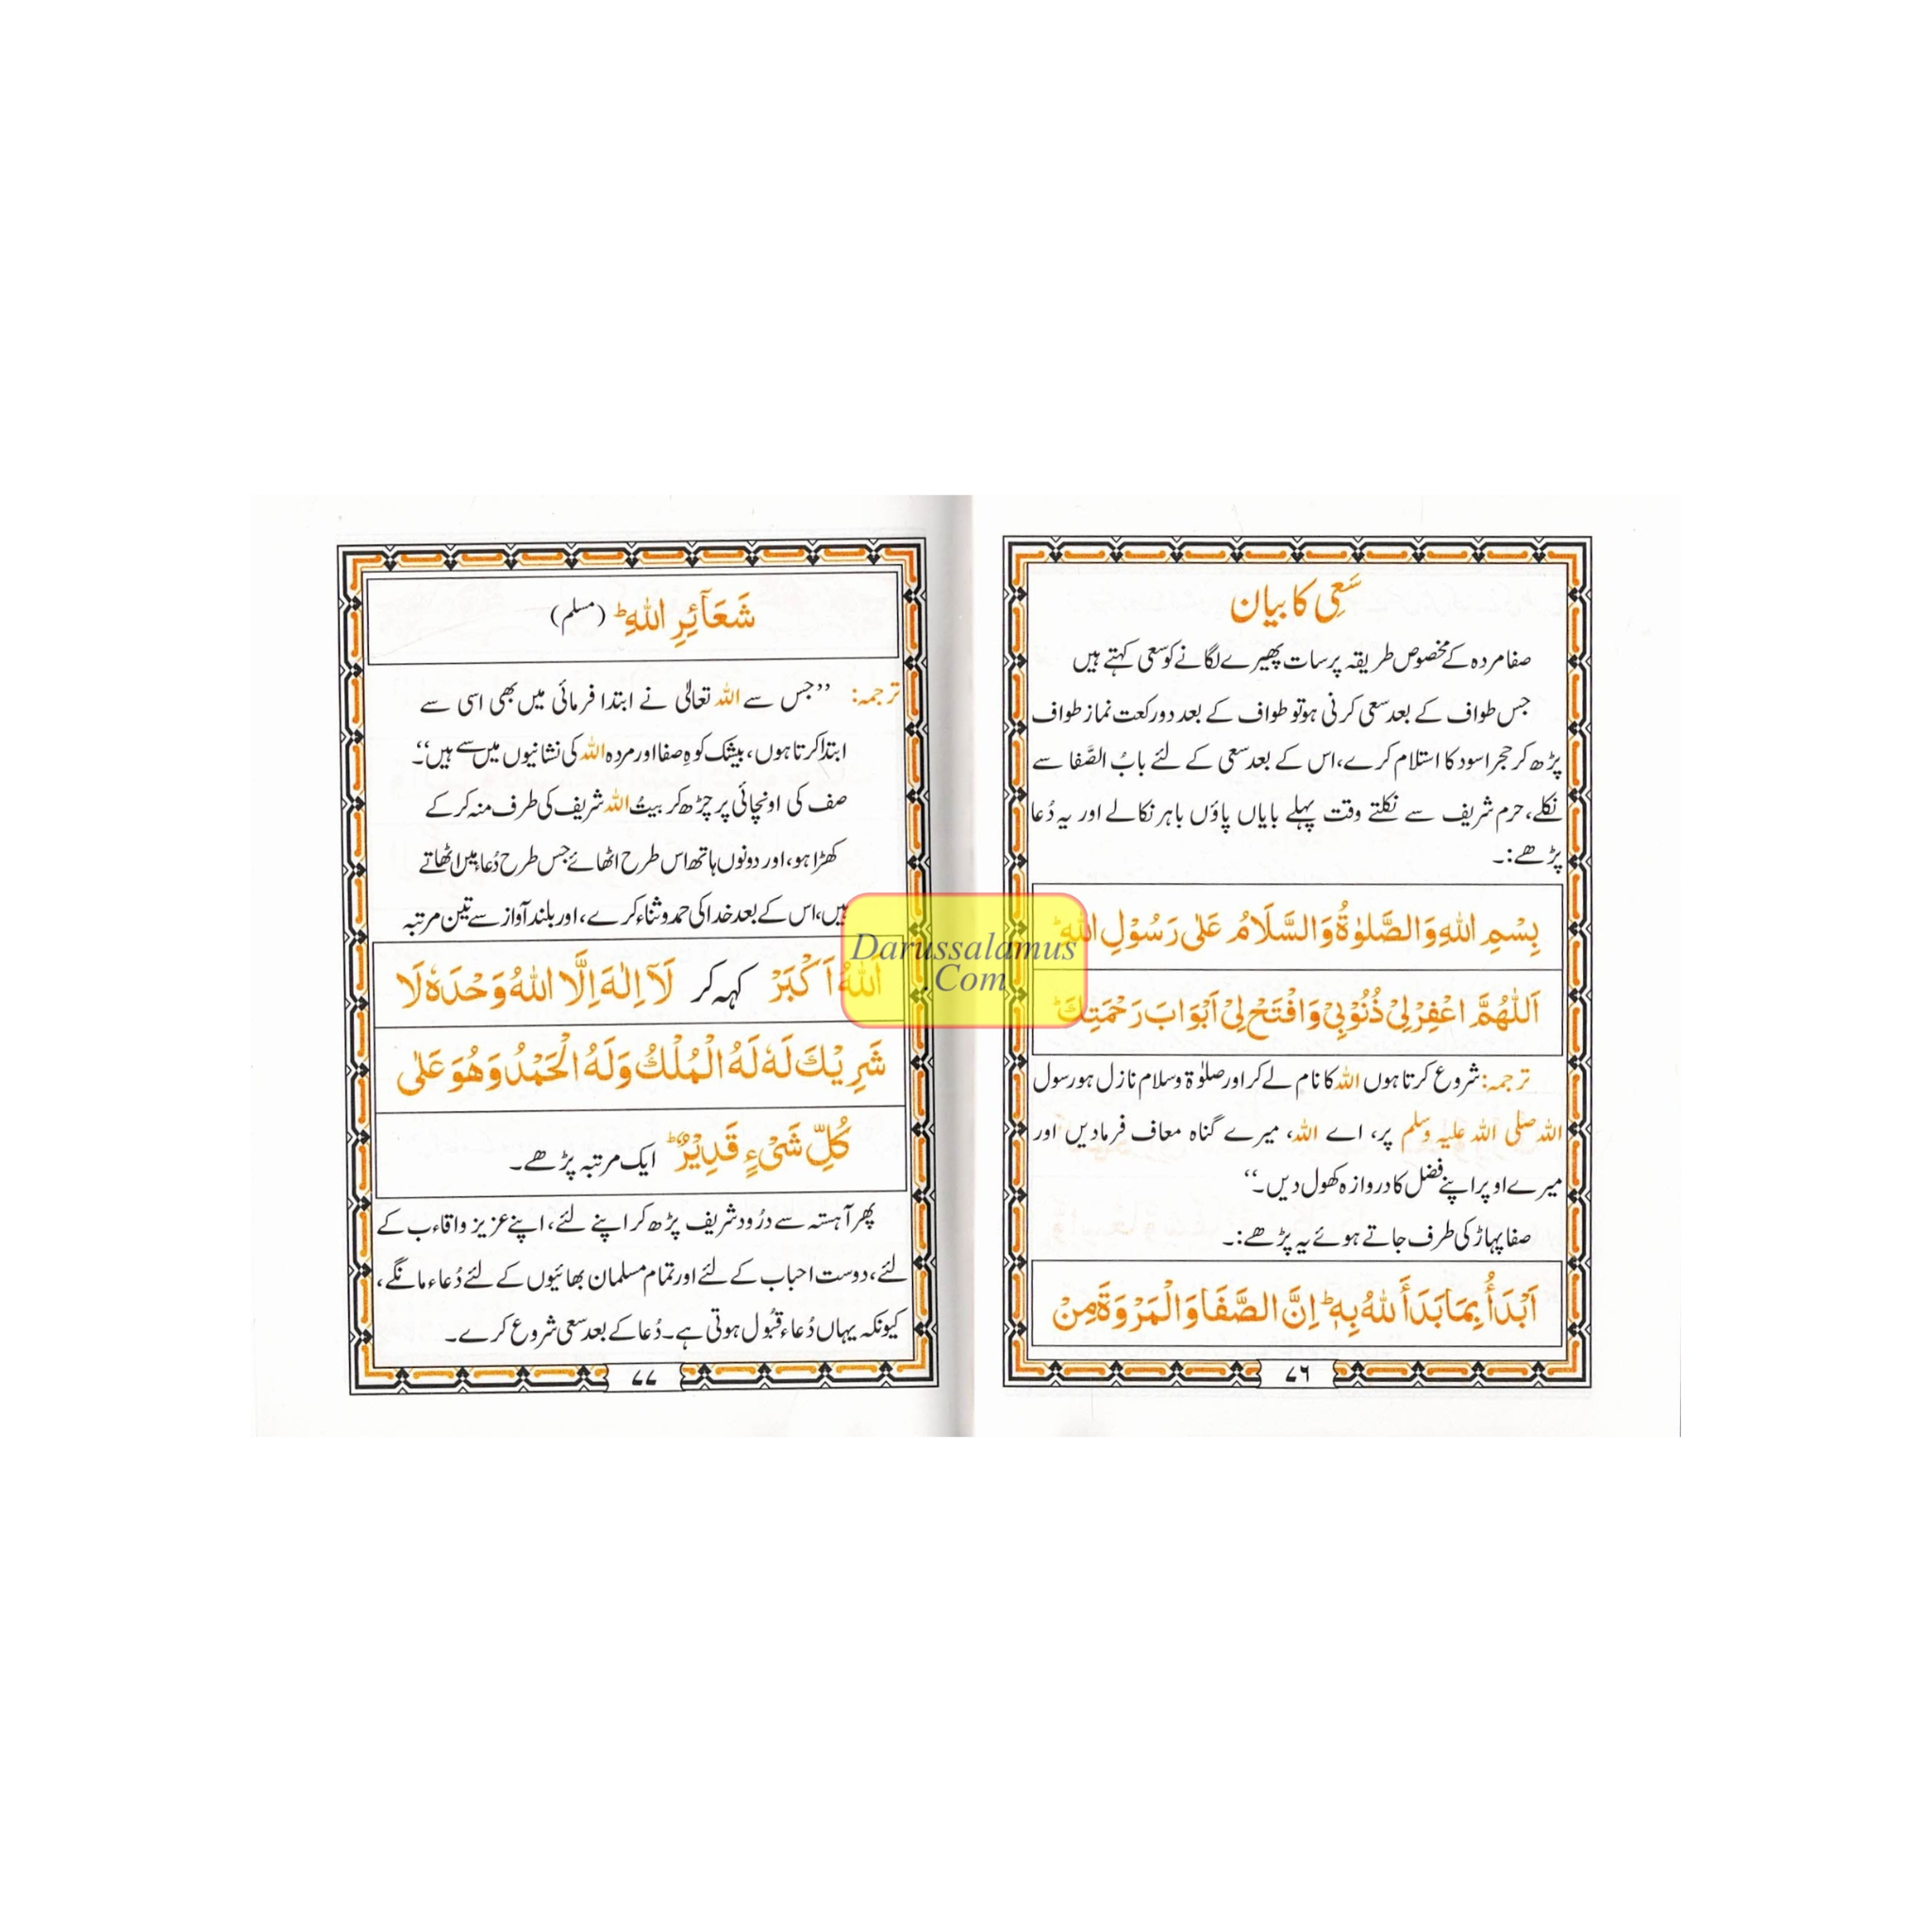 سَعِی کا بیان
صفا مردہ کے مخصوص طریقہ پر سات پھیرے لگانے کو سعی کہتے ہیں
جس طواف کے بعد سعی کرنی ہو تو طواف کے بعد دو رکعت نماز طواف
پڑھ کر حجر اسود کا استلام کرے، اس کے بعد سعی کے لئے بابُ الصَّفا سے
نکلے، حرم شریف سے نکلتے وقت پہلے بایاں پاؤں باہر نکالے اور یہ دُعا
پڑھے:۔
بِسْمِ اللهِ وَالصَّلٰوةُ وَالسَّلَامُ عَلٰى رَسُوْلِ اللهِ ؕ
اَللّٰهُمَّ اغْفِرْلِیْ ذُنُوْبِیْ وَافْتَحْ لِیْ اَبْوَابَ رَحْمَتِكَ ؕ
ترجمہ: شروع کرتا ہوں اللہ کا نام لے کر اور صلوٰۃ وسلام نازل ہو رسول
اللہ صلی اللہ علیہ وسلم پر، اے اللہ، میرے گناہ معاف فرمادیں اور
میرے اوپر اپنے فضل کا دروازہ کھول دیں۔‘‘
صفا پہاڑ کی طرف جاتے ہوئے یہ پڑھے:۔
اَبْدَأُ بِمَا بَدَأَ اللهُ بِهٖ ؕ اِنَّ الصَّفَا وَالْمَرْوَةَ مِنْ
۷۶
شَعَآئِرِ اللهِ ؕ (مسلم)
ترجمہ: ’’جس سے اللہ تعالیٰ نے ابتدا فرمائی میں بھی اسی سے
ابتدا کرتا ہوں، بیشک کوہِ صفا اور مردہ اللہ کی نشانیوں میں سے ہیں‘‘۔
صف کی اونچائی پر چڑھ کر بیتُ اللہ شریف کی طرف منہ کر کے
کھڑا ہو، اور دونوں ہاتھ اس طرح اٹھائے جس طرح دُعاء میں اٹھاتے
ہیں، اس کے بعد خدا کی حمد و ثناء کرے، اور بلند آواز سے تین مرتبہ
اَللهُ اَكْبَرْ کہہ کر لَآ اِلٰهَ اِلَّا اللهُ وَحْدَهٗ لَا
شَرِیْكَ لَهٗ لَهُ الْمُلْكُ وَلَهُ الْحَمْدُ وَهُوَ عَلٰى
كُلِّ شَیْءٍ قَدِیْرٌ ؕ ایک مرتبہ پڑھے۔
پھر آہستہ سے درُود شریف پڑھ کر اپنے لئے، اپنے عزیز و اقاءب کے
لئے، دوست احباب کے لئے اور تمام مسلمان بھائیوں کے لئے دُعاء مانگے،
کیونکہ یہاں دُعاء قبُول ہوتی ہے۔ دُعا کے بعد سعی شروع کرے۔
۷۷
Darussalamus
.Com